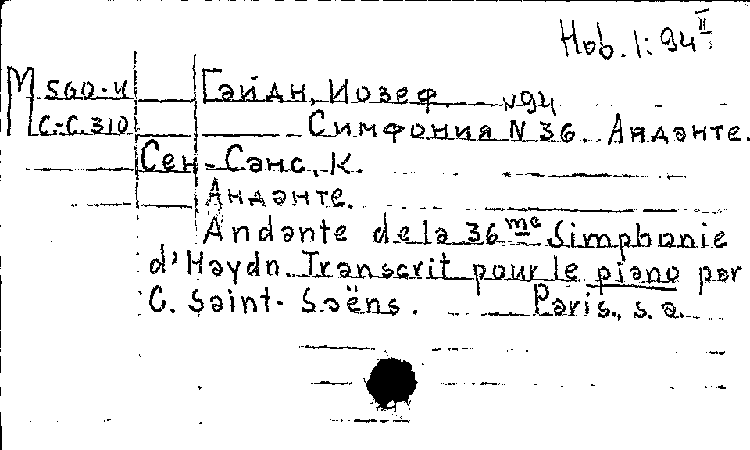 Hob. I: 94 II
М 560-И Гайдн, Иозеф N94
С.-С. 310 Симфония N 36. Анданте.
Сен-Санс, К.
Анданте.
Andante de la 36 me Simphonie
d'Haydn. Transcrit pour le piano par
C. Saint-Saëns. Paris., s. a.